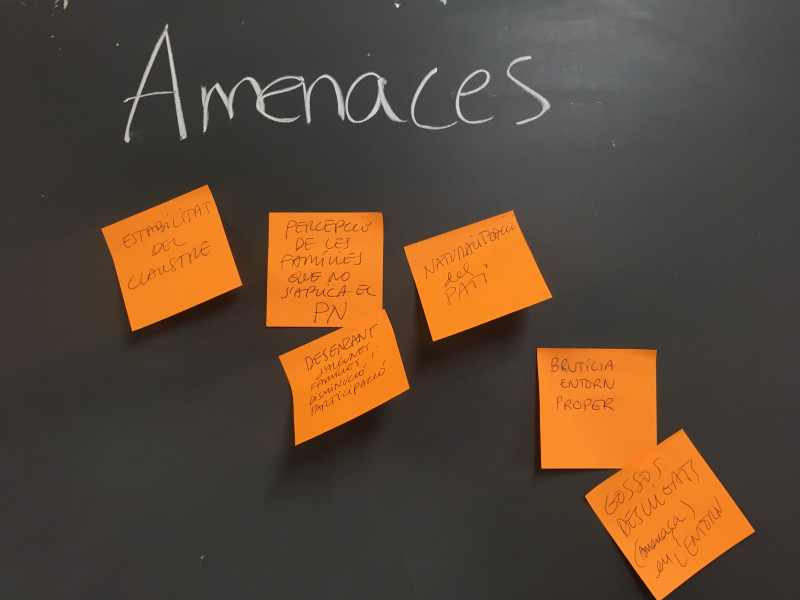 Amenaces
ESTABILITAT
DEL
CLAUSTRE
PERCEPCIÓ
DE LES
FAMÍLIES
QUE NO
S'APLICA EL
PN
NATURALITZACIÓ
del
PATI
DESENCANT
D'ALGUNES
FAMÍLIES I
DISMINUCIÓ
PARTICIPACIÓ
BRUTÍCIA
ENTORN
PROPER
GOSSOS
DESLLIGATS
(amenaça)
en L'ENTORN